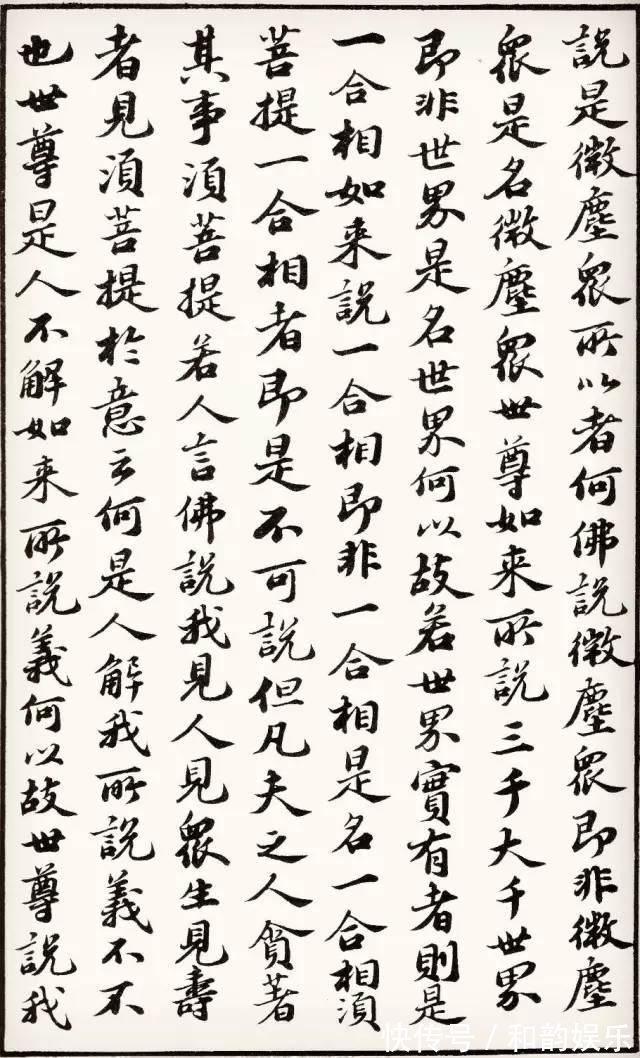 說是微塵眾所以者何佛說微塵眾即非微塵
眾是名微塵眾世尊如来所說三千大千世界
即非世界是名世界何以故若世界實有者則是
一合相如来說一合相即非一合相是名一合相須
菩提一合相者即是不可說但凡夫之人貪著
其事須菩提若人言佛說我見人見眾生見壽
者見須菩提於意云何是人解我所說義不不
也世尊是人不解如来所說義何以故世尊說我
快传号 / 和韵娱乐